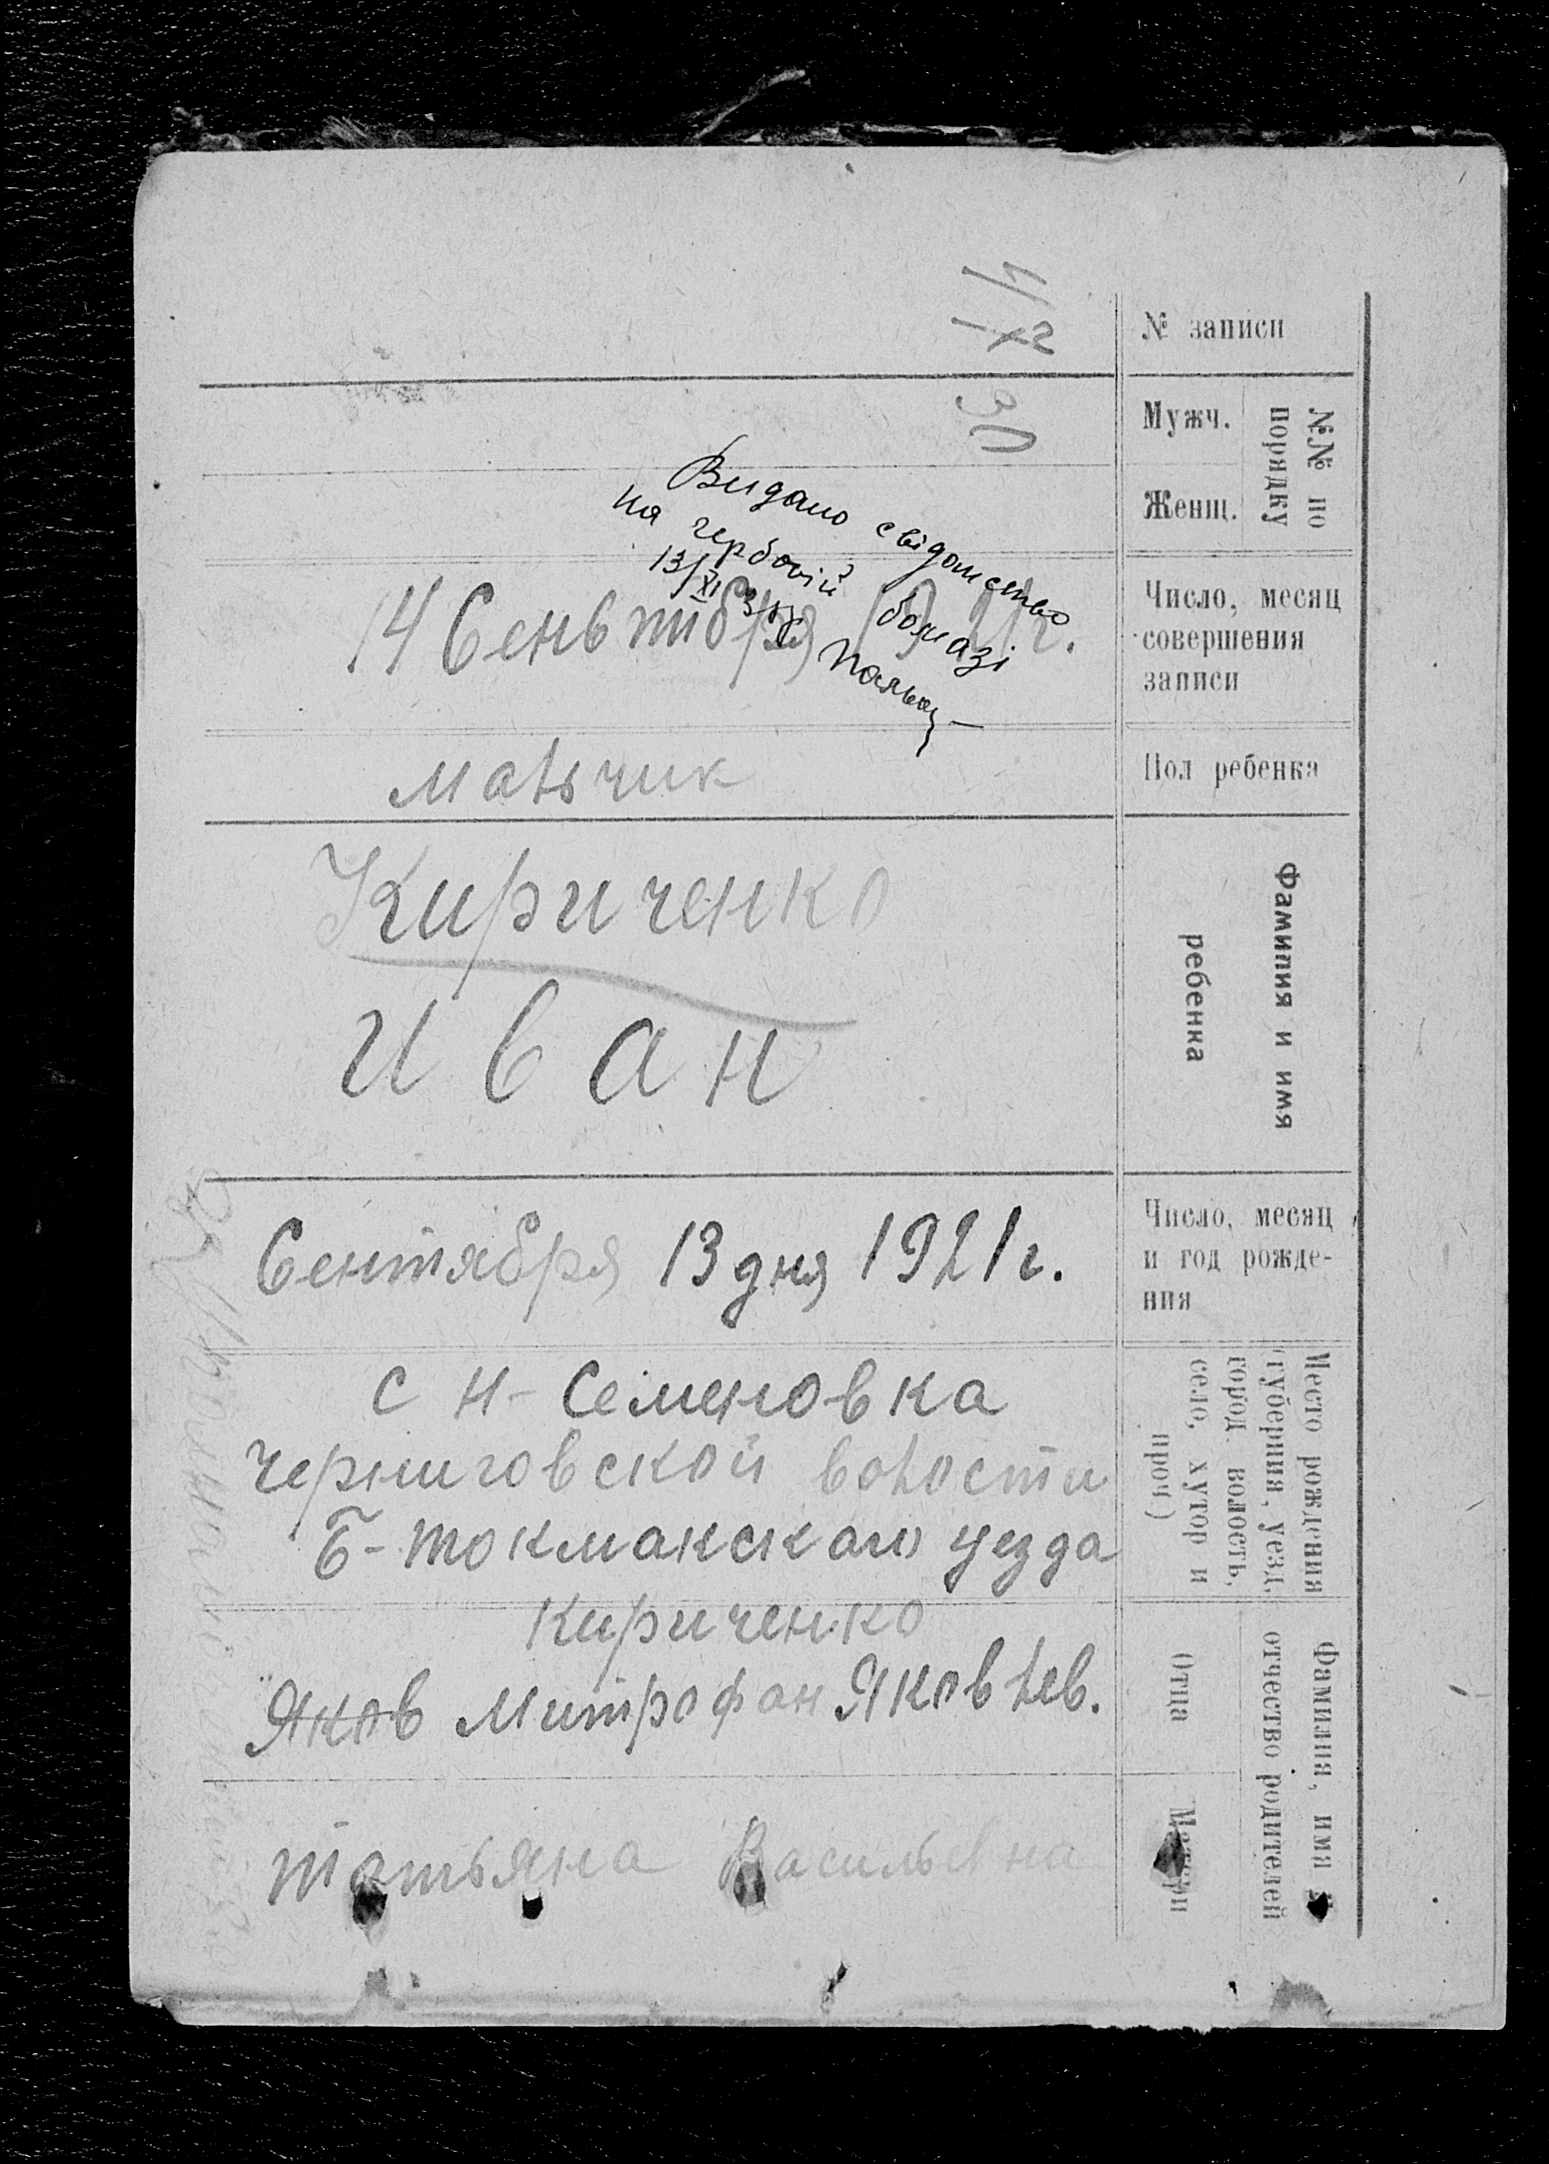 № записи
№№ по порядку
Мужч.
30
Женщ.
Видано свідотство
на гербовій бомазі
13/XI
Число, месяц
совершения
записи
14 Сеньтября 1921г.
Пол ребенка
мальчик
Фамилия и имя
ребенка
Кириченко
Иван
Число, месяц
и год рожде-
ния
Сентября 13 дня 1921г.
Место рождения
(губерния, уезд,
город. волость,
село, хутор и
проч)
с Н-Семеновка
Черниговской волости
Б-Токмакскаго уезда
Фамилия, имя и
отчество родителей
Отца
Кириченко
Яков Митрофан Яковлев.
Матери
Татьяна Васильевна